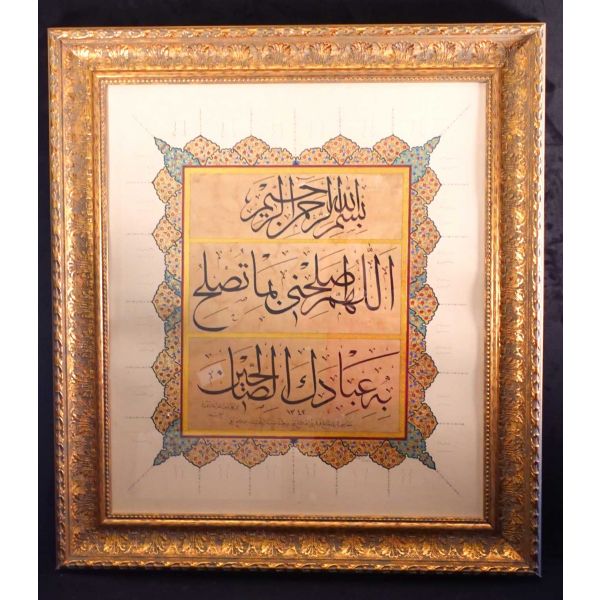 بسم الله الرحمن الرحيم
اللهم اصلحنى بما تصلح
به عبادك الصالحين
١٣٤٢